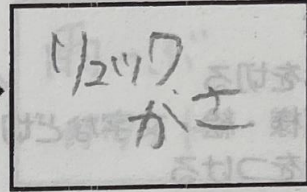 リュック
がさ